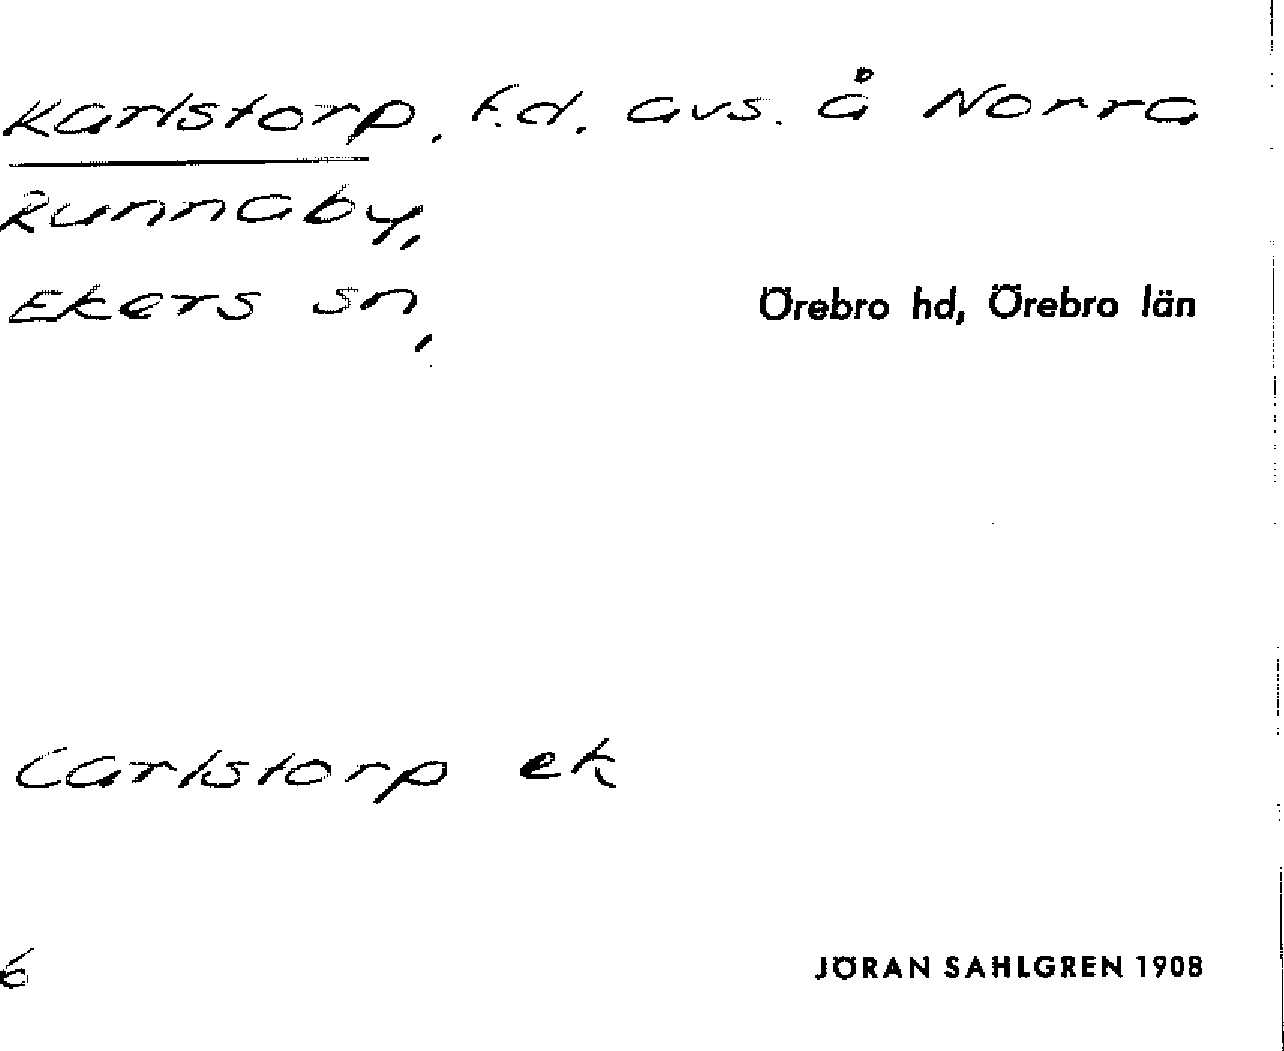 Karlstorp, f.d. avs. å Norra
Runnaby,
Ekers sn, Örebro hd, Örebro län
Carlstorp ek
6 JÖRAN SAHLGREN 1908